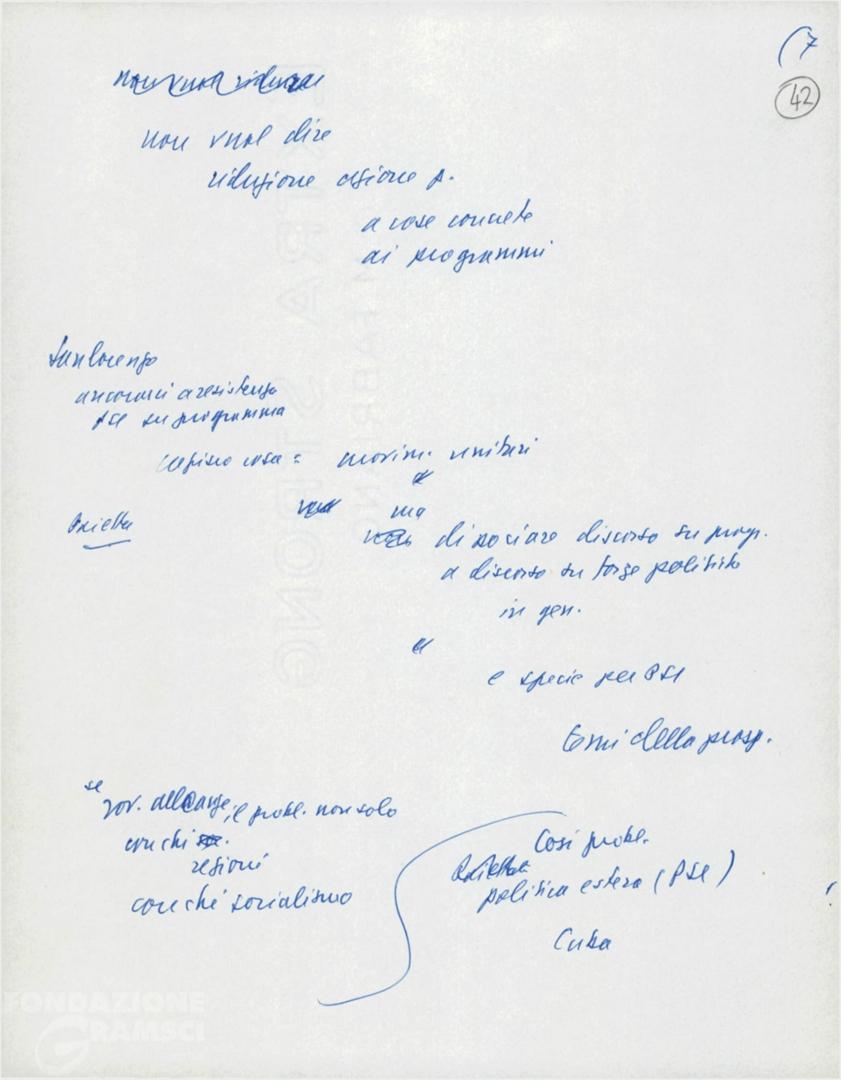 (7
42
non vuol ridurre
non vuol dire
riduzione azione p.
a cose concrete
ai programmi
Sanlorenzo
ancorarci a resistenza
su programma
capisco cosa = movim. unitari
ma
Oriella
dissociare discorso su progr.
a discorso su forze politiche
in gen.
e specie per PSI
temi della prosp.
se
gov. alleanze, il probl. non solo
con chi
regioni
con chi socialismo
Così probl.
politica estera (PSI)
Cuba
FONDAZIONE
GRAMSCI